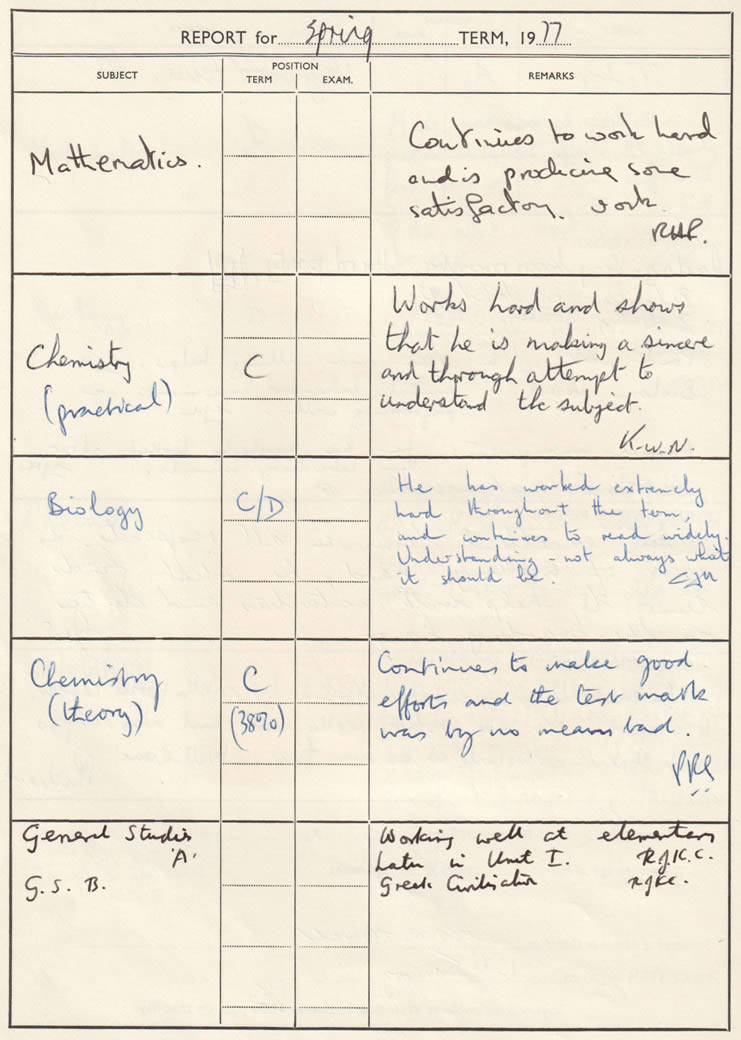 REPORT for Spring TERM, 1977
SUBJECT
POSITION
TERM EXAM.
REMARKS
Mathematics.
Continues to work hard
and is producing some
satisfactory work.
RHP.
Chemistry
(practical)
C
Works hard and shows
that he is making a sincere
and thorough attempt to
understand the subject.
K.W.N.
Biology
C/D
He has worked extremely
hard throughout the term,
and continues to read widely.
Understanding - not always what
it should be.
Chemistry
(theory)
C
(38%)
Continues to make good
efforts and the test mark
was by no means bad.
General Studies
'A'
Working well at elementary
Latin in Unit I. R.J.K.C.
G. S. B.
Greek Civilisation RJKC.